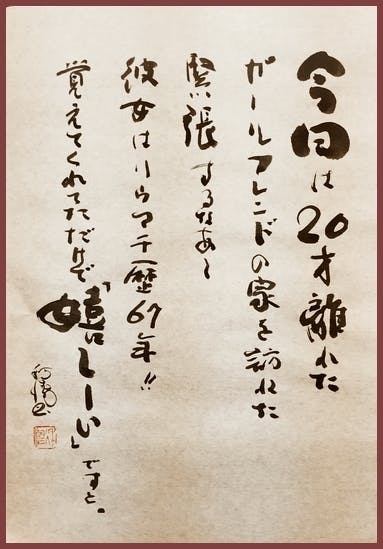 今日は20才離れた
ガールフレンドの家を訪れた
緊張するなあ〜
彼女はリウマチ歴67年!!
覚えてくれてただけで
「嬉しーい」ですと。